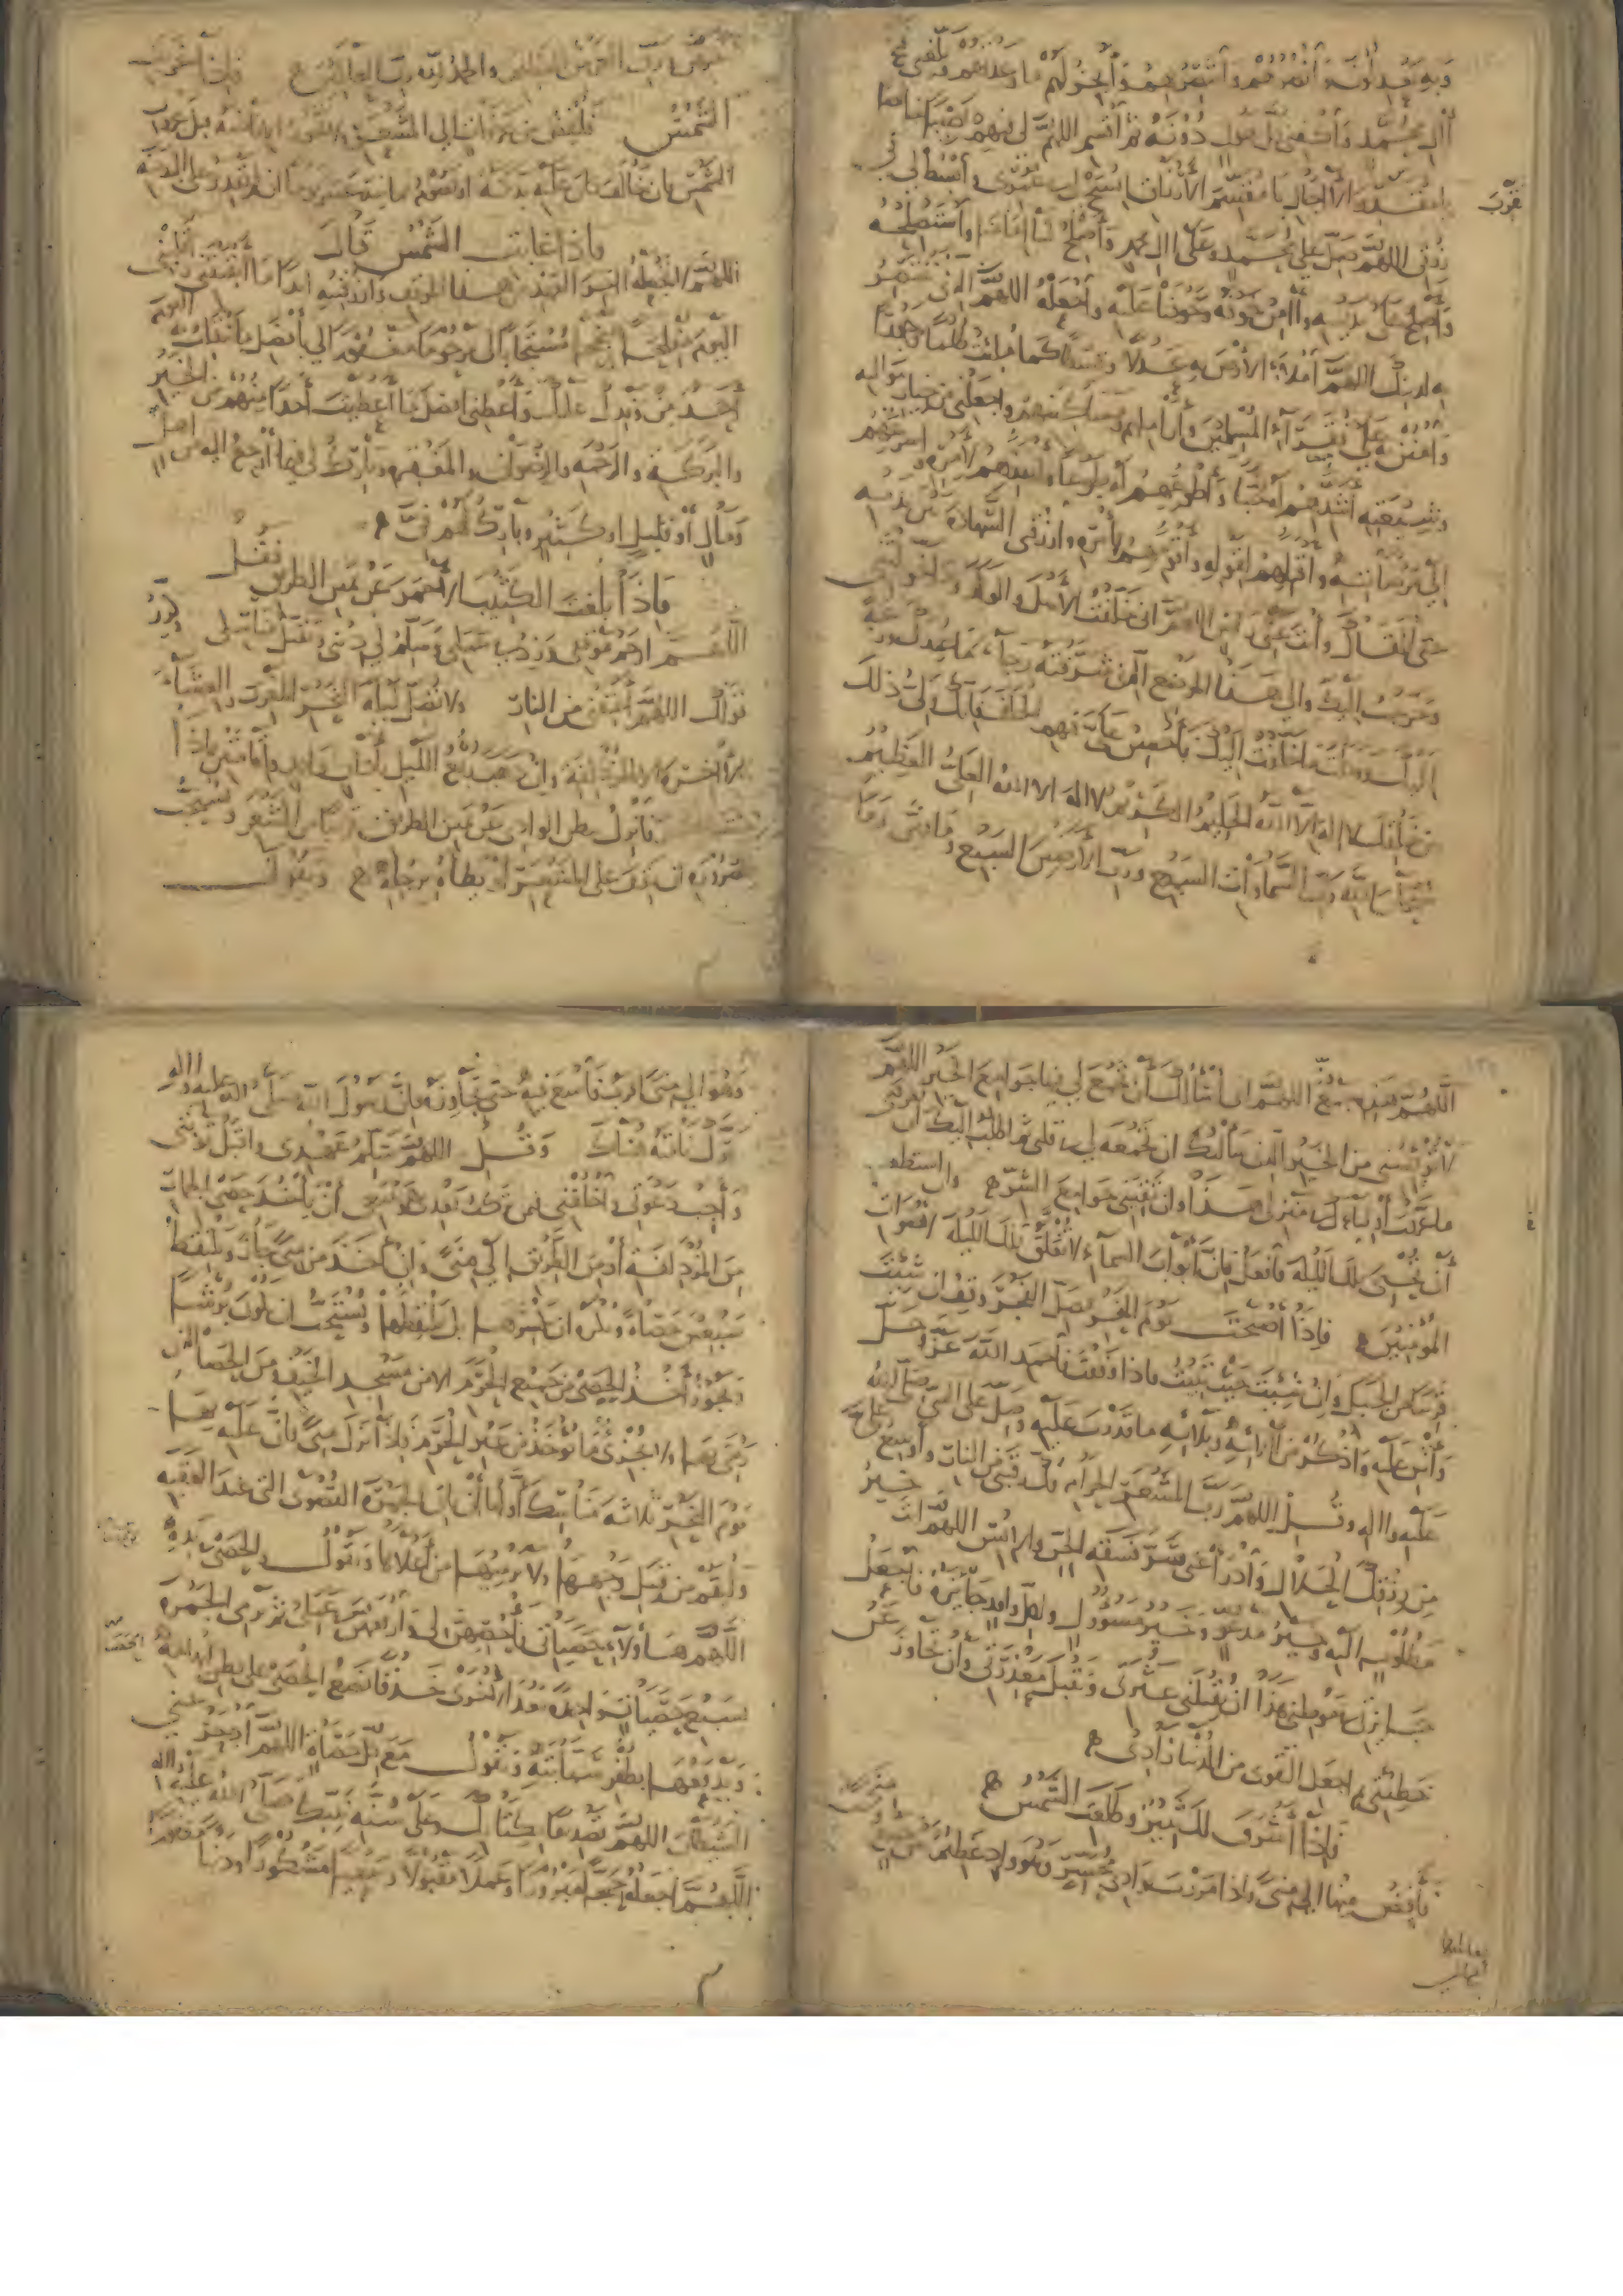 وبه وعدا
آل محمد واكفني كل هول دونه ثم اقسم اللهم لي فيهم نصيبا خالصا
يا مقدر الآجال يا مقسم الأرزاق افسح لي في عمري وابسط لي في
رزقي اللهم صل على محمد وعلى آل محمد وأصلح لنا إمامنا واستصلحه
وأصلح على يديه وآمن خوفه وخوفنا عليه واجعله اللهم الذي تنتصر
به لدينك اللهم املأ الأرض به عدلا وقسطا كما ملئت ظلما وجورا
وامنن به على فقراء المسلمين وأراملهم ومساكينهم واجعلني من خيار مواليه
وشيعته أشدهم له حبا وأطوعهم له طوعا وأنفذهم لأمره وأسرعهم
إلى مرضاته وأقبلهم لقوله وأقومهم بأمره وارزقني الشهادة بين يديه
حتى ألقاك وأنت عني راض اللهم اني خلفت الأهل والولد وما خولتني
وخرجت إليك وإلى هذا الموضع الذي شرفته رجاء ما عندك ورغبة
إليك ووكلت ما خلفت إليك فأحسن علي فيهم الخلف فإنك ولي ذلك
من خلقك لا إله إلا الله الحليم الكريم لا إله إلا الله العلي العظيم
سبحان الله رب السماوات السبع ورب الأرضين السبع وما فيهن وما
بينهن ورب العرش العظيم والحمد لله رب العالمين فإذا غربت
الشمس فليفض من عرفات إلى المشعر
الشمس فان خالف كان عليه بدنة أو صوم ثمانية عشر يوما ان لم يقدر على البدنة
فاذا غابت الشمس قال
اللهم لا تجعله آخر العهد من هذا الموقف وارزقنيه أبدا ما أبقيتني واقلبني
اليوم مفلحا منجحا مستجابا لي مرحوما مغفورا لي بأفضل ما ينقلب به اليوم
أحد من وفدك عليك وأعطني أفضل ما أعطيت أحدا منهم من الخير
والبركة والرحمة والرضوان والمغفرة وبارك لي فيما أرجع إليه من أهل
ومال أو قليل أو كثير وبارك لهم في
فإذا بلغت الكثيب الأحمر عن يمين الطريق فقل
اللهم ارحم موقفي وزد في عملي وسلم لي ديني وتقبل مناسكي
اللهم أعتقني من النار ولا تصل ليلة النحر المغرب والعشاء
الآخرة إلا بالمزدلفة وإن ذهب ربع الليل بأذان واحد وإقامتين فإذا
فانزل بطن الوادي عن يمين الطريق قريبا من المشعر ويستحب
للصرورة ان يقف على المشعر أو يطأه برجله وتقول
اللهم هذه جمع اللهم اني أسألك أن تجمع لي فيها جوامع الخير اللهم
لا تؤيسني من الخير الذي سألتك ان تجمعه لي في قلبي ثم اطلب إليك أن تعرفني
ما عرفت أولياءك في منزلي هذا وان تقيني جوامع الشر وان استطعت
أن تحيي تلك الليلة فافعل فإن أبواب السماء لا تغلق تلك الليلة لأصوات
المؤمنين فإذا أصبحت يوم النحر فصل الفجر وقف ان شئت
قريبا من الجبل وإن شئت حيث تبيت فاذا وقفت فاحمد الله عز وجل
وأثن عليه واذكر من آلائه وبلائه ما قدرت عليه وصل على النبي صلى الله
عليه وآله وقل اللهم رب المشعر الحرام فك رقبتي من النار وأوسع علي
من رزقك الحلال وادرأ عني شر فسقة الجن والإنس اللهم أنت خير
مطلوب إليه وخير مدعو وخير مسؤول ولكل وافد جائزة فاجعل
جائزتي في موطني هذا ان تقيلني عثرتي وتقبل معذرتي وأن تجاوز عن
خطيئتي ثم اجعل التقوى من الدنيا زادي
فإذا أشرق لك ثبير وطلعت الشمس
فأفض منها إلى منى وإذا مررت بوادي محسر وهو واد عظيم
وهو إلى منى أقرب فاسع فيه حتى تجاوزه فإن رسول الله صلى الله عليه وآله
حرك ناقته هناك وقل اللهم سلم عهدي واقبل توبتي
وأجب دعوتي واخلفني فيمن تركت بعدي وينبغي أن يأخذ حصى الجمار
من المزدلفة أو من الطريق إلى منى وإن أخذ من منى جاز ويلتقط
سبعين حصاة ويكره ان يكسرها بل يلتقطها ويستحب ان تكون برشا
ويجوز أخذ الحصى من جميع الحرم الا من مسجد الخيف ومن الحصا التي
رمي بها ولا يجزئ ما يؤخذ من غير الحرم فإذا نزل منى فان عليه بها
يوم النحر ثلاثة مناسك أولها أن يأتي الجمرة القصوى التي عند العقبة
وليقم من قبل وجهها ولا يرميها من أعلاها ويقول والحصى في يده
اللهم هؤلاء حصياتي فأحصهن لي وارفعهن في عملي ثم يرمي الجمرة
بسبع حصيات واحدة بعد أخرى خذفا تضع الحصى على بطن إبهامه
ويدفعها بظفر سبابته وتقول مع كل حصاة اللهم ادحر عني
الشيطان اللهم تصديقا بكتابك وعلى سنة نبيك صلى الله عليه وآله
اللهم اجعله حجا مبرورا وعملا مقبولا وسعيا مشكورا وذنبا